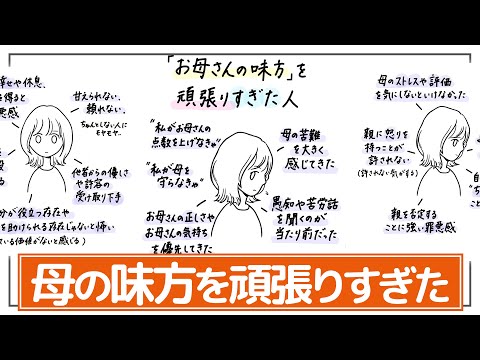 「お母さんの味方」を
頑張りすぎた人
幸せや休息、
を得ると
悪感
甘えられない、
頼れない。
ちゃんとしない人に
モヤモヤ…
他者からの優しさ
や許容の
受け取り下手
分が役立つ存在や
を助けられる存在じゃないと怖い
ている価値がないと感じる)
"私がお母さんの
点数を上げなきゃ"
"私が母を
守らなきゃ"
お母さんの正しさや
お母さんの気持ち
を優先してきた
母の苦難
を大きく
感じてきた
愚知や苦労話
を聞くのが
当たり前だった
母のストレスや評価
を気にしないといけなかった
親に怒りを
持つことが
許されない
(許されない気がする)
親を否定する
ことに強い罪悪感
自
母の味方を頑張りすぎた